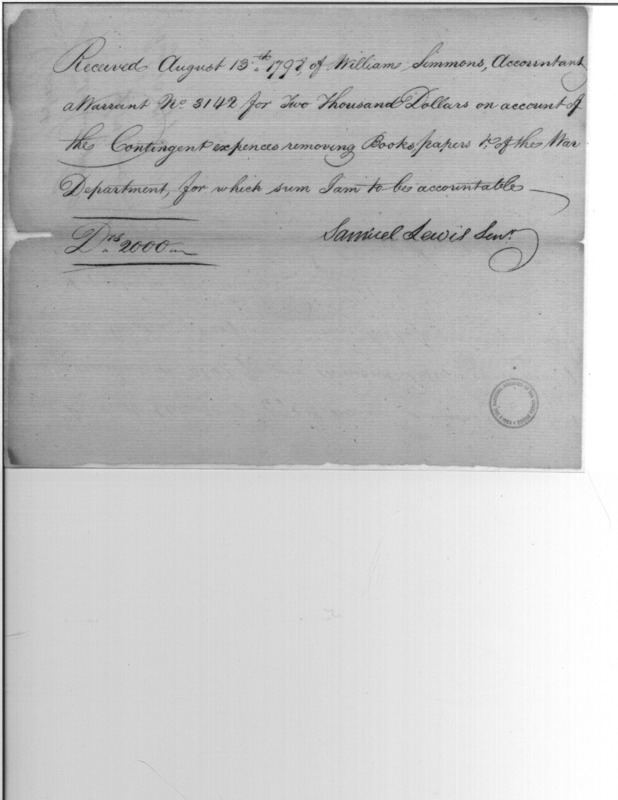 Received August 13th 1798, of William Simmons, Accountant
a Warrant No 3142 for Two Thousand Dollars on account of
the Contingent expences removing Books papers &c of the War
Department, for which sum I am to be accountable
Drs 2000
Samuel Lewis Senr.
THE NATIONAL ARCHIVES OF THE UNITED STATES